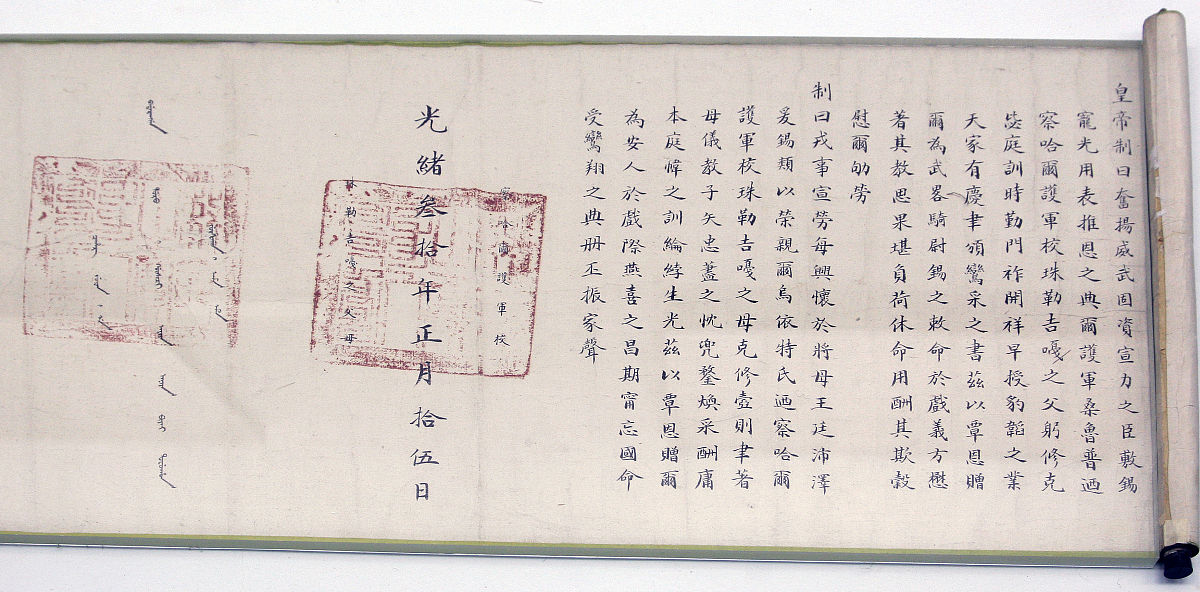 皇帝制曰奮揚威武固資宣力之臣敷錫
寵光用表推恩之典爾護軍桑魯普迺
察哈爾護軍校珠勒吉嘎之父躬修克
毖庭訓時勤門祚開祥早授豹韜之業
天家有慶聿頒鸞采之書茲以覃恩贈
爾為武畧騎尉錫之敕命於戲義方懋
著其教思果堪負荷休命用酬其欺穀
慰爾劬勞
制曰戎事宣勞每興懷於將母王廷沛澤
爰錫類以榮親爾烏依特氏迺察哈爾
護軍校珠勒吉嘎之母克修壼則聿著
母儀教子矢忠藎之忱兜鍪煥采酬庸
本庭幃之訓綸綍生光茲以覃恩贈爾
為安人於戲際燕喜之昌期甯忘國命
受鸞翔之典冊丕振家聲
察哈爾護軍校
光緒叁拾年正月拾伍日
珠勒吉嘎之父母